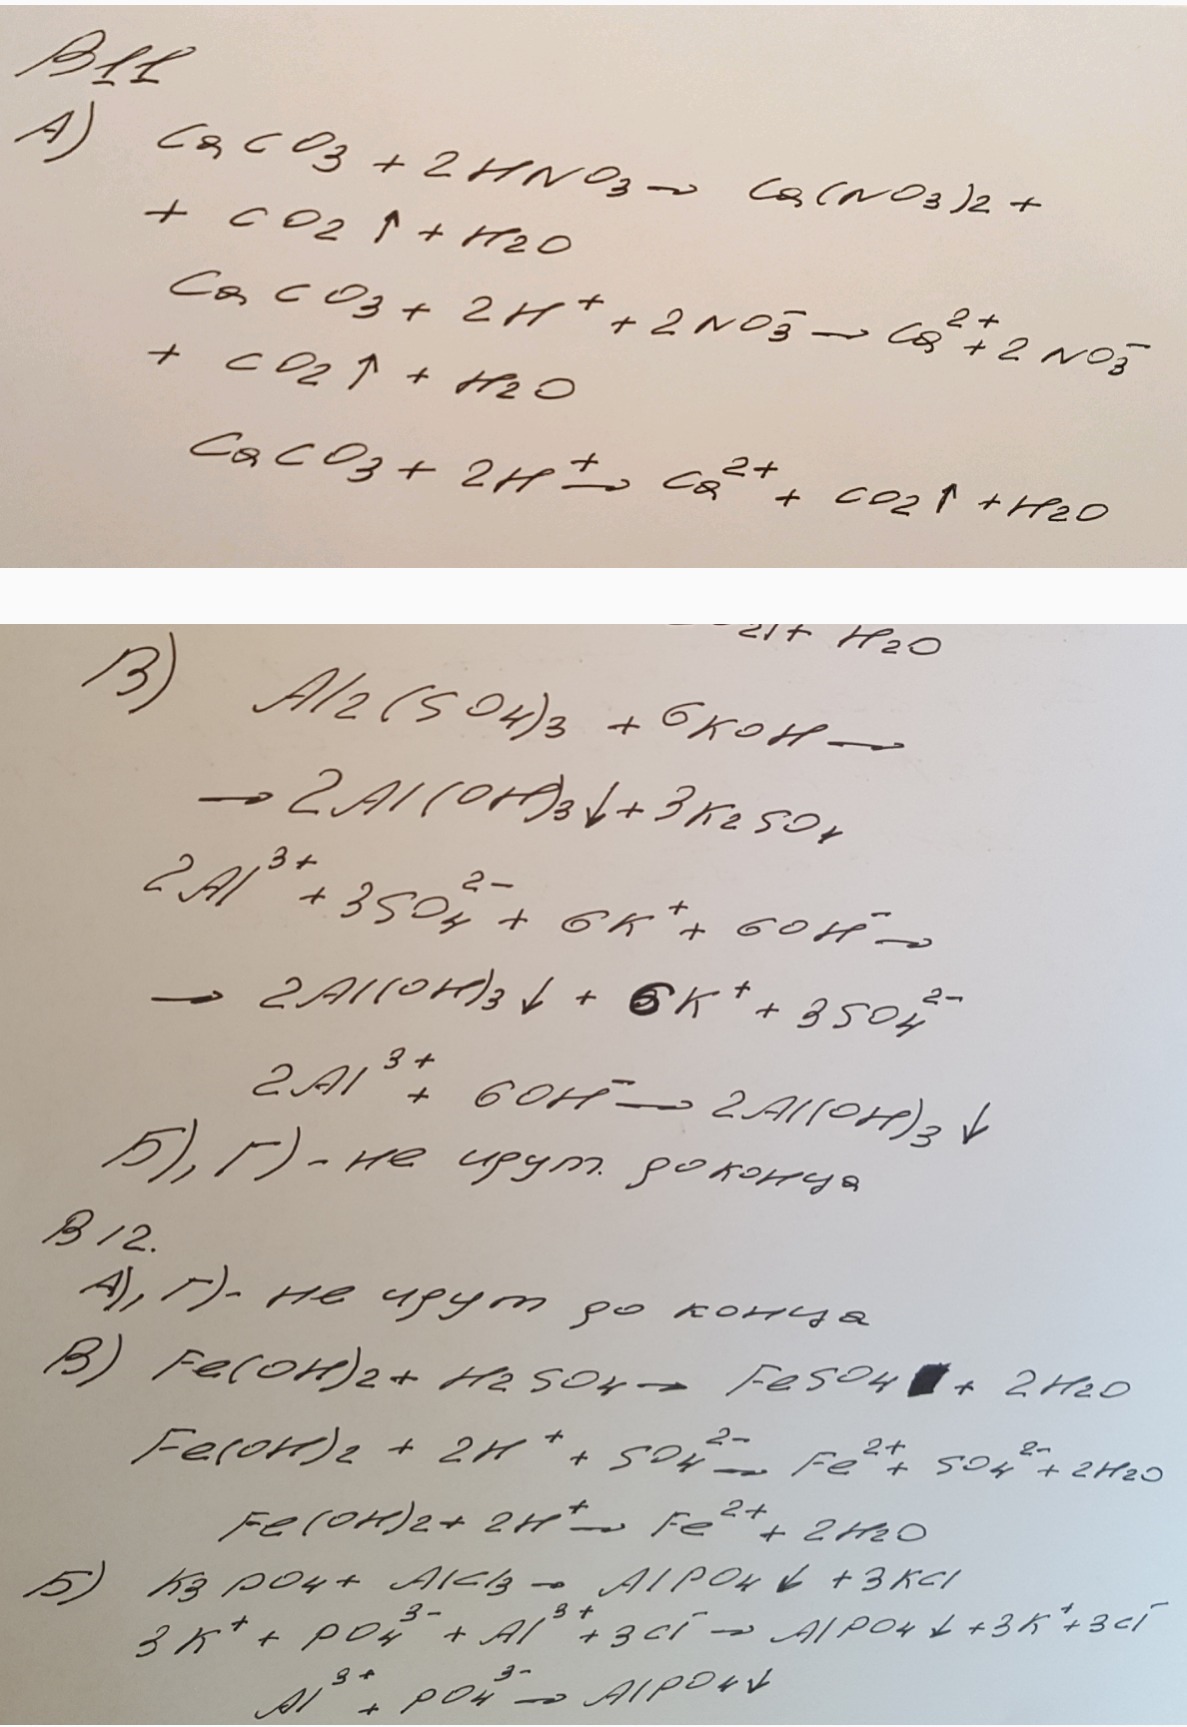 В11
А) CaCO3 + 2HNO3 → Ca(NO3)2 +
+ CO2↑ + H2O
CaCO3 + 2H⁺ + 2NO3⁻ → Ca²⁺ + 2NO3⁻
+ CO2↑ + H2O
CaCO3 + 2H⁺ → Ca²⁺ + CO2↑ + H2O
+ H2O
В) Al2(SO4)3 + 6KOH →
→ 2Al(OH)3↓ + 3K2SO4
2Al³⁺ + 3SO4²⁻ + 6K⁺ + 6OH⁻ →
→ 2Al(OH)3↓ + 6K⁺ + 3SO4²⁻
2Al³⁺ + 6OH⁻ → 2Al(OH)3↓
Б), Г) - не идут до конца
В12.
А), Г) - не идут до конца
В) Fe(OH)2 + H2SO4 → FeSO4 + 2H2O
Fe(OH)2 + 2H⁺ + SO4²⁻ → Fe²⁺ + SO4²⁻ + 2H2O
Fe(OH)2 + 2H⁺ → Fe²⁺ + 2H2O
Б) K3PO4 + AlCl3 → AlPO4↓ + 3KCl
3K⁺ + PO4³⁻ + Al³⁺ + 3Cl⁻ → AlPO4↓ + 3K⁺ + 3Cl⁻
Al³⁺ + PO4³⁻ → AlPO4↓